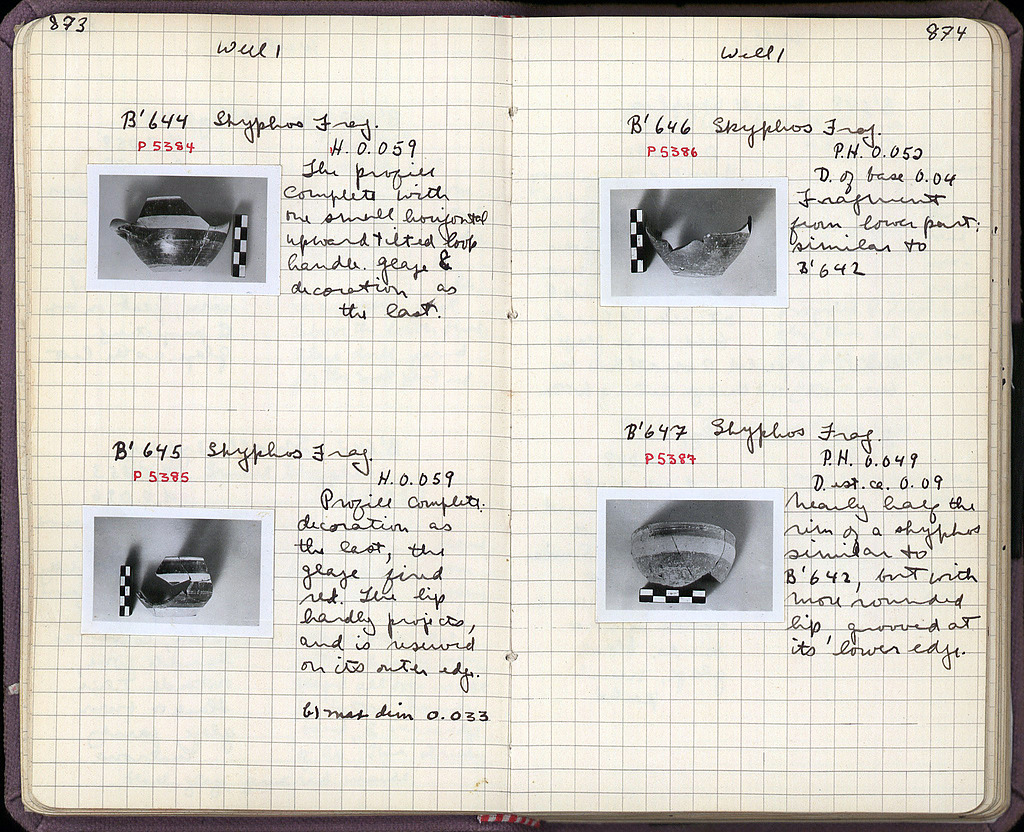 873
Well 1
B' 644 Skyphos Frag.
P 5384
H. 0.059
The profile
complete with
one small horizontal
upward tilted loop
handle. glaze &
decoration as
the last.
B' 645 Skyphos Frag.
P 5385
H. 0.059
Profile complete.
decoration as
the last, the
glaze fired
red. The lip
hardly projects,
and is reserved
on its outer edge.
b) max dim 0.033
874
Well 1
B' 646 Skyphos Frag.
P 5386
P.H. 0.052
D. of base 0.04
Fragment
from lower part:
similar to
B' 642
B' 647 Skyphos Frag.
P 5387
P.H. 0.049
D. est. ca. 0.09
Nearly half the
rim of a skyphos
similar to
B' 642, but with
more rounded
lip, grooved at
its lower edge.